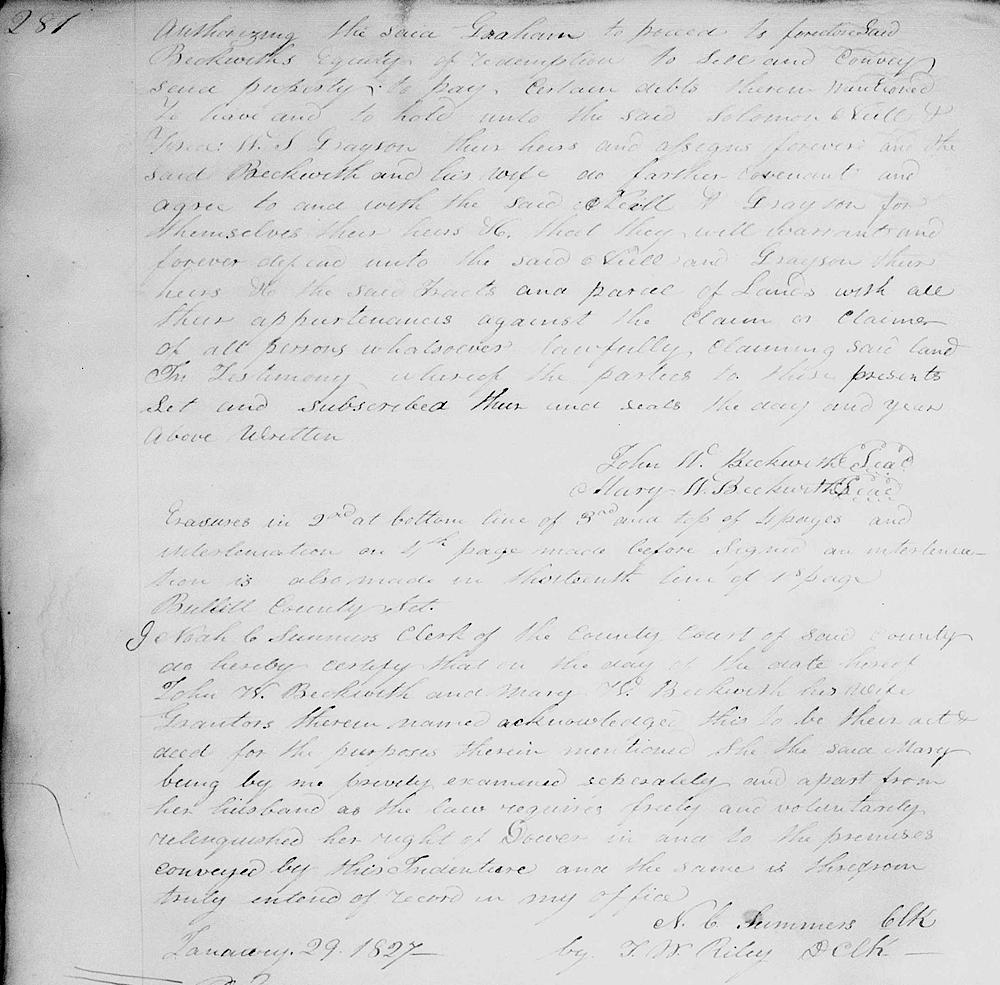 281
Authorizing the said Graham to proceed to foreclose Said
Beckwiths Equity of redemption to Sell and Convey
said property to pay Certain debts therein mentioned
To have and to hold unto the said Solomon Neill &
Fred: W. S. Grayson their heirs and assigns forever and the
said Beckwith and his wife do farther Covenant and
agree to and with the said Neill & Grayson for
themselves their heirs &c. that they will warrant and
forever defend unto the said Neill and Grayson their
heirs &c the said Tracts and parcel of Lands with all
their appurtenances against the Claim or Claimes
of all persons whatsoever lawfully Claiming said land
In Testimony whereof the parties to these presents
Set and subscribed their and seals the day and year
above Written
John W. Beckwith Seal
Mary W. Beckwith Seal
Erasures in 2nd at bottom line of 3rd and top of 4 pages and
interlineation on 4th page made before Signed an interlinea-
tion is also made in thirteenth line of 1st page
Bullitt County Sct.
I Noah C Summers Clerk of the County Court of said County
do hereby certify that on the day of the date hereof
John W. Beckwith and Mary W. Beckwith his wife
Grantors therein named acknowledged this to be their act &
deed for the purposes therein mentioned She the said Mary
being by me privily examined seperately and apart from
her husband as the law requires freely and voluntarily
relinquished her right of Dower in and to the premises
conveyed by this Indenture and the same is thregrom
truly entend of record in my office
N. C. Summers Clk
January. 29. 1827— by. T. W. Riley D Clk —